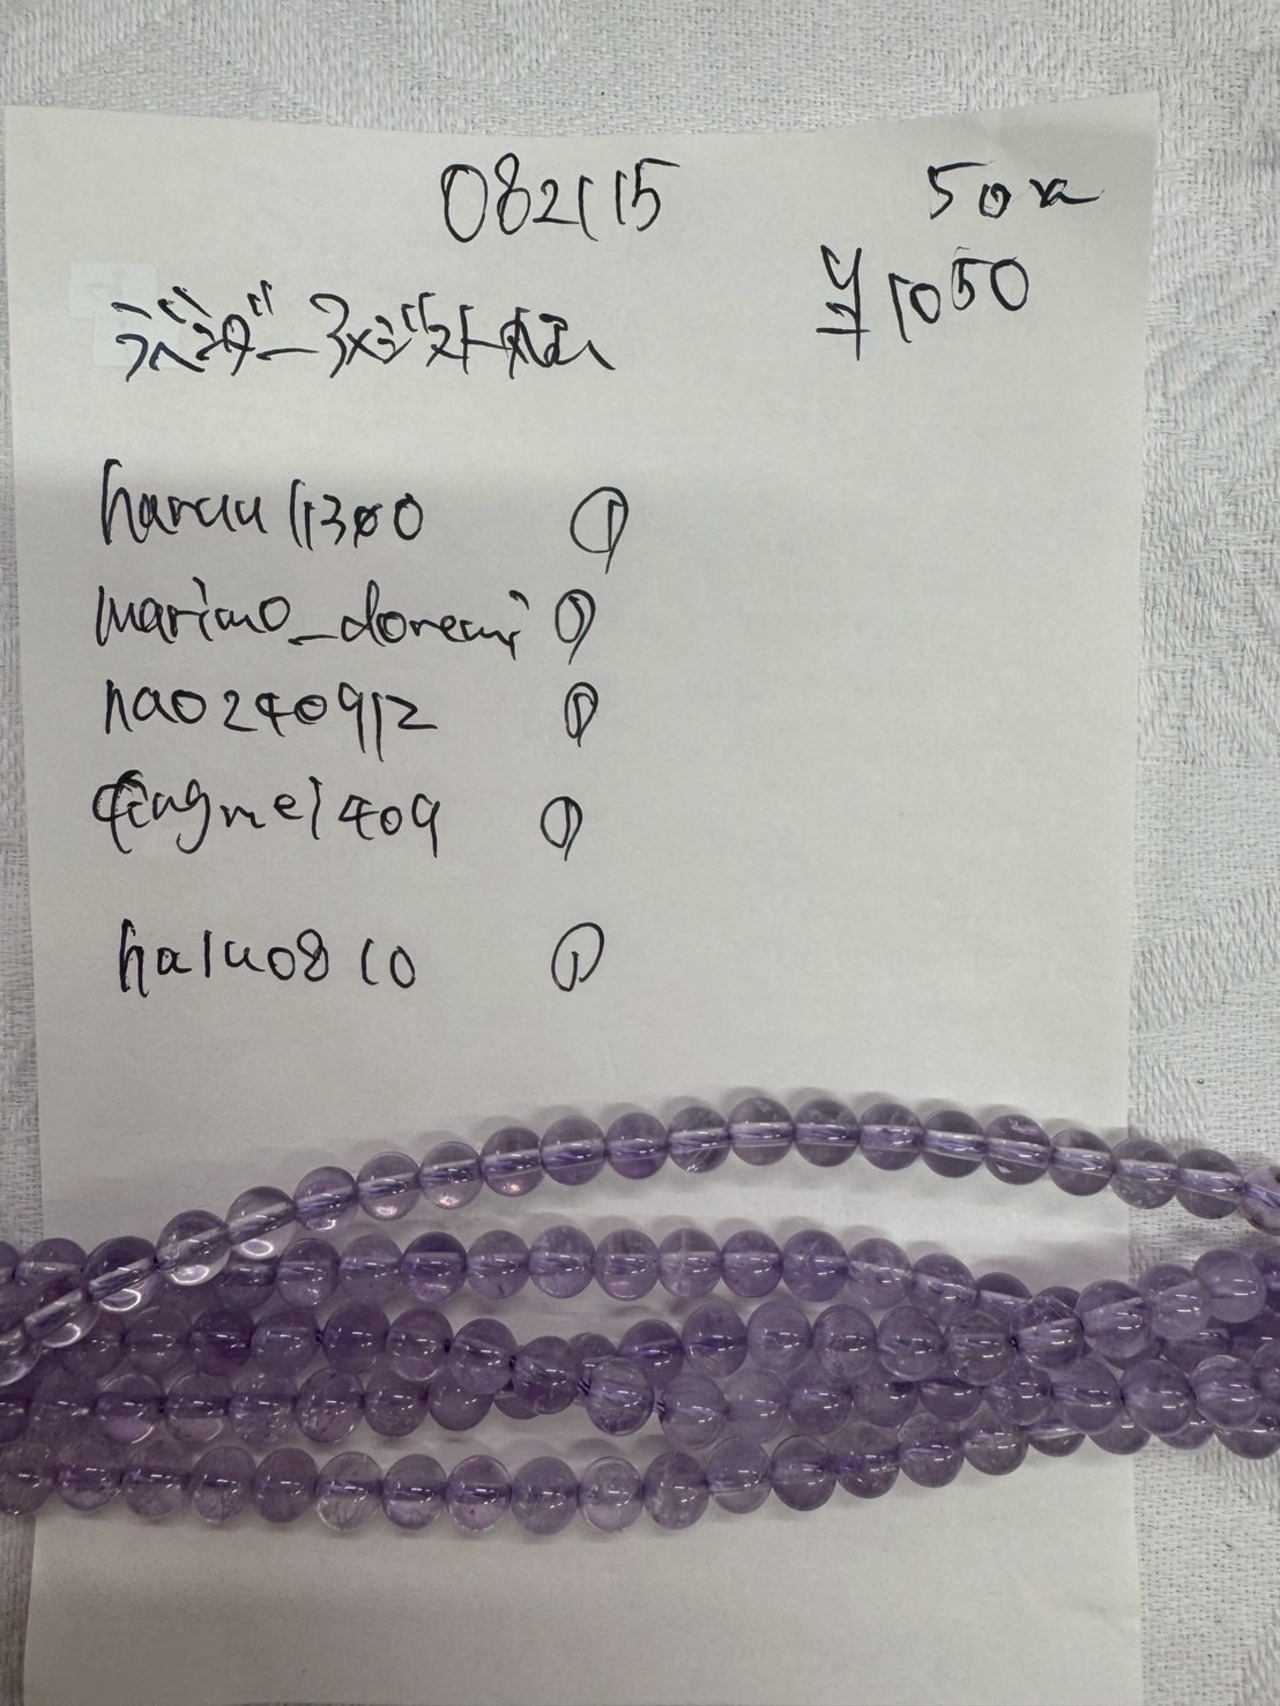 082115
50入
¥1050
ラベンダーアメジスト
haruu11300 ①
marimo_doremi ①
nao240912 ①
mei409 ①
haru0810 ①